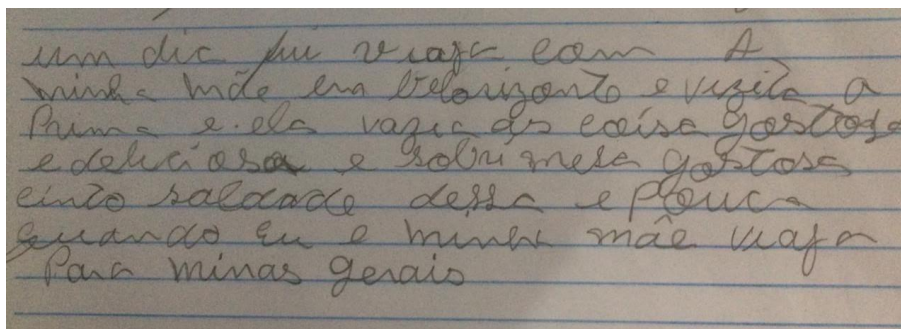 um dia fui viaja com A
minha mãe em belorizonto e vizita a
Prima e ela vazia as coisa gostosa
e deliciosa e sobrimesa gostosa
cinto saldade dessa e Pouca
quando eu e minha mãe viaja
Para minas gerais